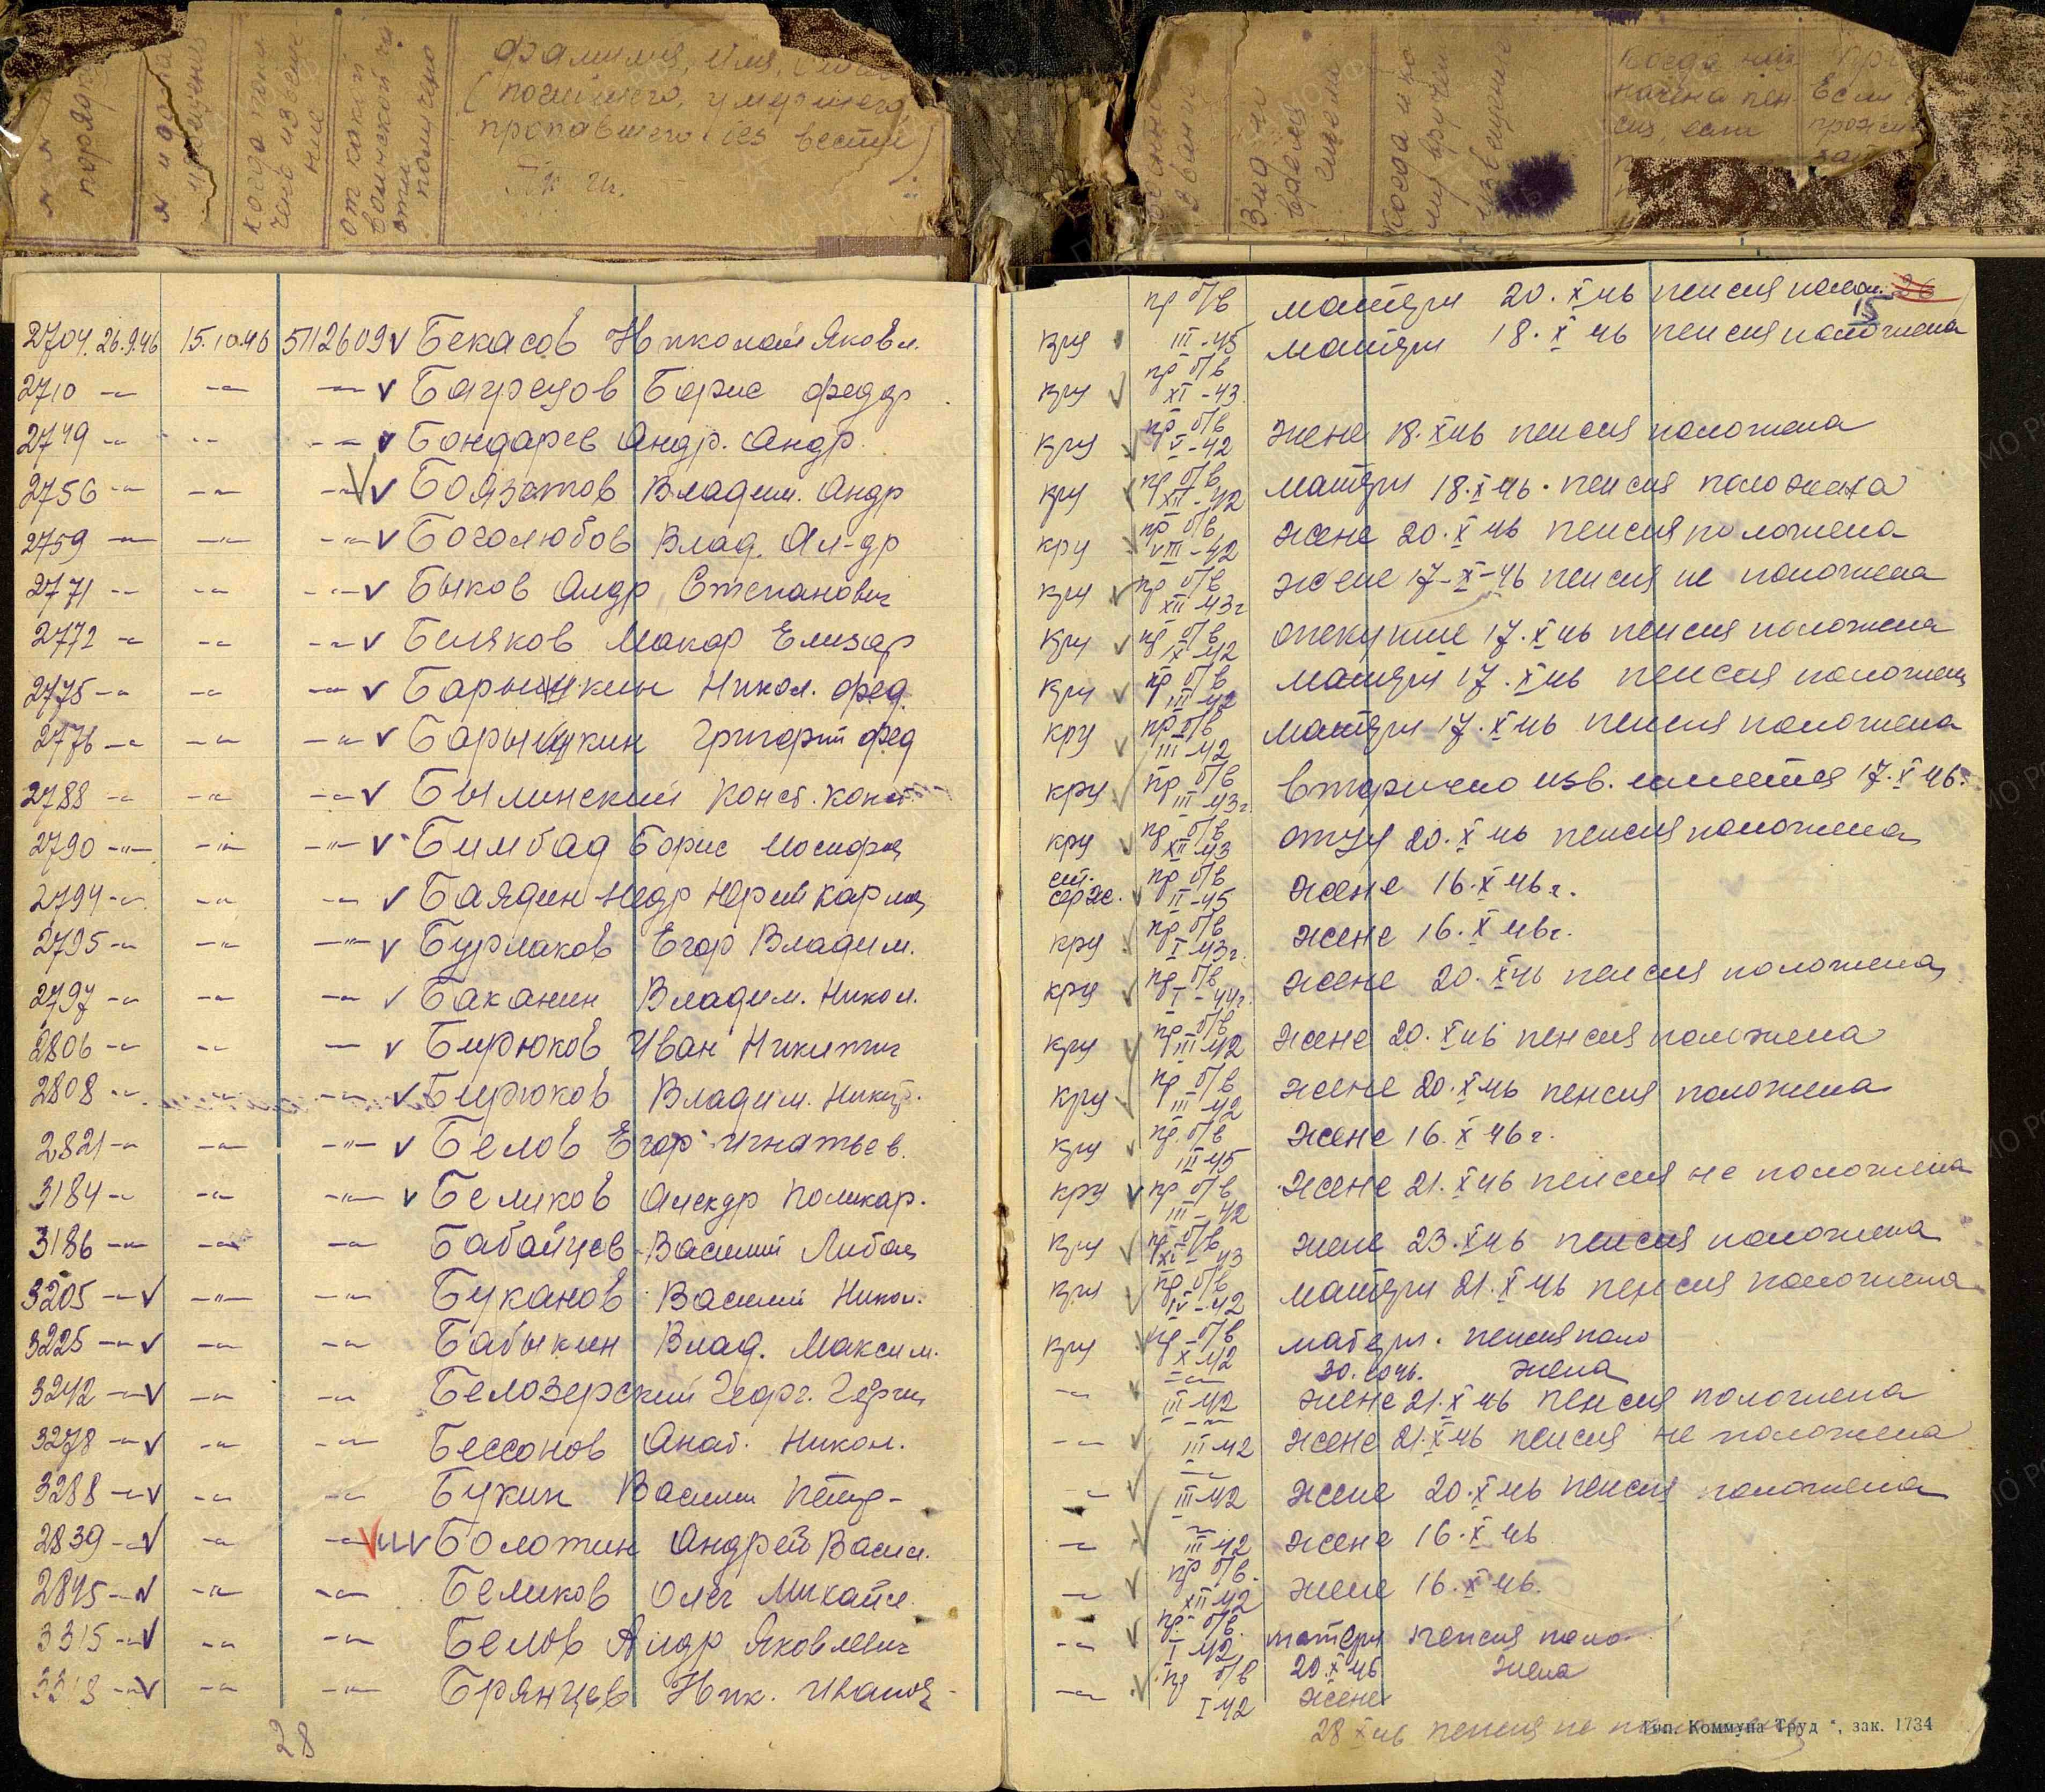 № № порядк
№ и дата извещения
когда получено извещение
от какой воинской части получено
Фамилия, имя,
(погибшего, умершего,
пропавшего без вести)
звание
Вид и время гибели
Когда и кому вручен извещение
Когда наз
начена пен
сия, если
Если
прожи
2704. 26.9.46 15.10.46 5112609 v Бекасов Николай Яковл. кру пр б/в III-45 матери 20.X 46 пенсия полож. 26
матери 18.X 46 пенсия положена 15
2710 -"- -"- -"- v Борис Федор кру v пр б/в XI-43
2749 -"- -"- -"- v Бондарев Андр. Андр. кру v пр б/в V-42 жене 18.X 46 пенсия положена
2756 -"- -"- -"- v v Боязатов Владим. Андр кру v пр б/в XII-42 матери 18.X 46. пенсия положена
2759 -"- -"- -"- v Боголюбов Влад. Ал-др кру v пр б/в VIII-42 жене 20.X 46 пенсия положена
2771 -"- -"- -"- v Быков Алдр Степанович кру v пр б/в XII 43г жене 17-X-46 пенсия не положена
2772 -"- -"- -"- v Беляков Макар Елизар кру v пр б/в IX 42 опекунше 17.X 46 пенсия положена
2775 -"- -"- -"- v Барышкин Никол. Фед. кру v пр б/в III 42 матери 17.X 46 пенсия положена
2776 -"- -"- -"- v Барышкин Григорий Фед кру v пр б/в III 42 матери 17.X 46 пенсия положена
2788 -"- -"- -"- v Былинский Конст. Конст. кру v пр б/в III 43г. вторично изв. имеется 17.X 46.
2790 -"- -"- -"- v Бимбад Борис Иосифов кру v пр б/в XII 43 отцу 20.X 46 пенсия положена
2794 -"- -"- -"- v Баядин-Недр Юрий Карлов ст. серж. v пр б/в II-45 жене 16.X 46г.
2795 -"- -"- -"- v Бурлаков Егор Владим. кру v пр б/в I 43г. жене 16.X 46г.
2797 -"- -"- -"- v Баканин Владим. Никол. кру v пр б/в I-44г. жене 20.X 46 пенсия положена
2806 -"- -"- -"- v Бирюков Иван Никитич кру v пр б/в III 42 жене 20.X 46 пенсия положена
2808 -"- -"- -"- v Бирюков Владим. Никит. кру v пр б/в III 42 жене 20.X 46 пенсия положена
2821 -"- -"- -"- v Белов Егор Игнатьев. кру v пр. б/в III 45 жене 16.X 46г.
3184 -"- -"- -"- v Беликов Алекдр Поликар. кру v пр б/в III-42 жене 21.X 46 пенсия не положена
3186 -"- -"- -"- Бабайцев Василий кру v пр б/в XI 43 жене 23.X 46 пенсия положена
3205 -"- v -"- -"- Буканов Василий Никол. кру v пр б/в IV-42 матери 21.X 46 пенсия положена
3225 -"- v -"- -"- Бабыкин Влад. Максим. кру v пр б/в X 42 матери. пенсия поло
30. жена
3242 -"- v -"- -"- Белозерский Георг. Георги -"- v -"- III 42 жене 21.X 46 пенсия положена
3278 -"- v -"- -"- Бессонов Анат. Никол. -"- v -"- III 42 жене 21.X 46 пенсия не положена
3288 -"- v -"- -"- Букин Василий Петр- -"- v -"- III 42 жене 20.X 46 пенсия положена
2839 -"- v -"- -"- v v Болотин Андрей Васил. -"- v -"- III 42 жене 16.X 46
2845 -"- v -"- -"- Беликов Олег Михайл. -"- v пр б/в. XII 42 жене 16.X 46.
3315 -"- v -"- -"- Белов Алдр Яковлевич -"- v пр. б/в. I 42 матери пенсия поло-
20.X 46 жена
3318 -"- v -"- -"- Брянцев Ник. Иванов -"- v пр б/в I 42 жене
28 X 46 пенсия не
28
Тип. Коммуна Труд", зак. 1734